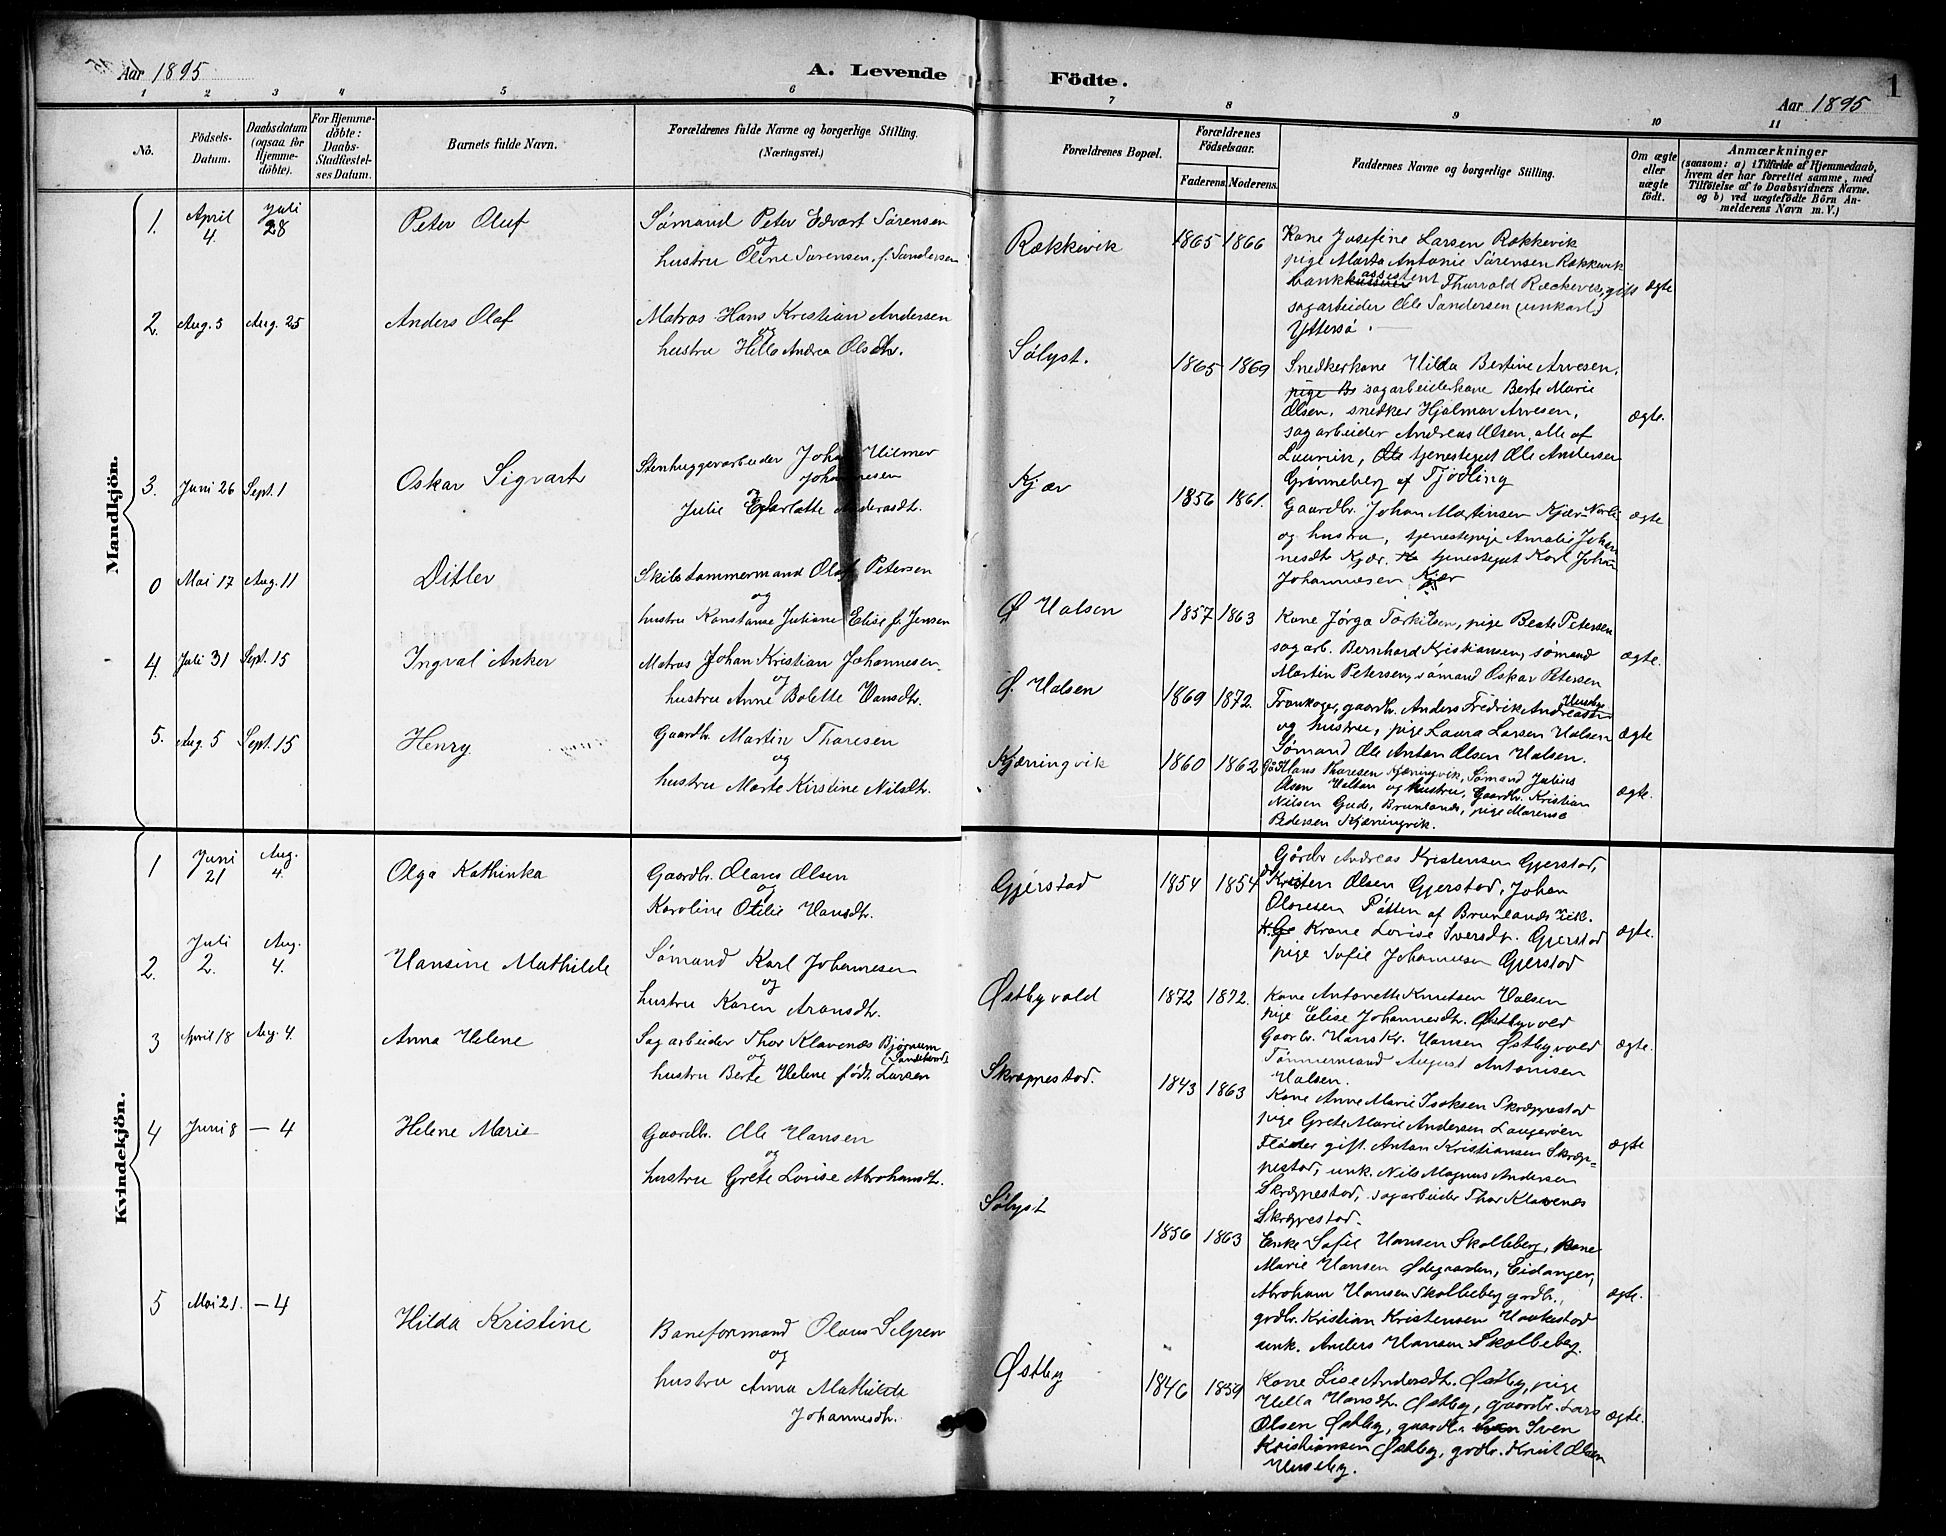 Aar 1895
A. Levende Födte.
1
Aar 1895
1 2 3 4 5 6 7 8 9 10 11
No.
Födsels-
Datum.
Daabsdatum
(ogsaa for
Hjemme-
döbte).
For Hjemme-
döbte:
Daabs-
Stadfæstel-
ses Datum.
Barnets fulde Navn.
Forældrenes fulde Navne og borgerlige Stilling.
(Næringsvei.)
Forældrenes Bopæl.
Forældrenes
Födselsaar.
Faderens. Moderens.
Faddernes Navne og borgerlige Stilling.
Om ægte
eller
uægte
födt.
Anmærkninger
(saasom: a) i Tilfælde af Hjemmedaab,
hvem der har forrettet samme, med
Tilföielse af to Daabsvidners Navne.
og b) ved uægtefödte Börn An-
melderens Navn m. V.)
Mandkjön.
1. April 4. Juli 28
Peter Oluf
Sømand Peter Edvart Sørensen
og
hustru Oline Sørensen f. Sandersen
Rækkevik
1865 1866
Kone Josefine Larsen Rækkevik
pige Marta Antonie Sørensen Rækkevik
bank assistent Thorvald Rækkevik, gift
sagarbeider Ole Sandersen (unkarl)
Yttersø.
ægte
2. Aug. 5 Aug. 25
Anders Olaf
Matros Hans Kristian Andersen
og
hustru Hella Andrea Olsdtr.
Sølyst.
1865 1869
Snedkerkone Hilda Bertine Arvesen.
pige Be sagarbeiderkone Berte Marie
Olsen, snedker Hjalmar Arvesen,
sagarbeider Andreas Olsen, alle af
Laurvik, Ole tjenestegut Ole Andersen
Grønneberg af Tjødling
ægte.
3. Juni 26 Sept. 1
Oskar Sigvart
Stenhuggerarbeider Johan Hilmer
Johannesen
og
Julie Charlotte Andersdt.
Kjær
1856 1861.
Gaardbr. Johan Martinsen Kjær Nordre
og hustru, tjenestepige Amalie Johan
nesdt Kjær. tjenestegut Karl Johan
Johannesen Kjær
ægte
0 Mai 17 Aug. 11
Ditlev
Skibstømmermand Olaf Petersen
og
hustru Konstanse Juliane Elise f. Jensen
Ø Halsen
1857 1863
Kone Jørga Torkilsen, pige Beate Petersen
sagarb. Bernhard Kristiansen, sømand
Martin Petersen, sømand Oskar Petersen
ægte.
4. Juli 31 Sept. 15
Ingval Anker
Matros Johan Kristian Johannesen
og
hustru Anne Bolette Hansdtr.
Ø. Halsen
1869 1872.
Trankoger, gaardbr. Anders Fredrik Andreasen
og hustru, pige Laura Larsen Halsen
Sømand Ole Anton Olsen Halsen.
ægte
5. Aug. 5 Sept. 15
Henry
Gaardbr. Martin Thoresen
og
hustru Marte Kirstine Nilsdtr.
Kjærringvik
1860 1862
Klaus Thoresen Kjærringvik, Sømand Julius
Olsen Halsen og hustru, Gaardbr. Kristian
Nilsen Gude, Brunlanes, pige Marense
Pedersen Kjærringvik.
ægte.
Kvindekjön.
1 Juni 21 Aug. 4.
Olga Kathinka
Gaardbr. Olaves Olsen
og
Karoline Otilie Hansdtr.
Gjerstad
1854 1854
Gårdbr Andreas Kristensen Gjerstad,
Kristen Olsen Gjerstad, Johan
Olavesen Pøtten af Brunlanes
Krone Lovise Iversdtr. Gjerstad
pige Sofie Johannesen Gjerstad
ægte.
2. Juli 2. Aug. 4.
Hansine Mathilde
Sømand Karl Johannesen
og
hustru Karen Aronsdtr.
Østbyvold
1872 1872.
Kone Antonette Knutsen Halsen
pige Elise Johannesdtr. Østbyvold
Gaardbr. Hans Kr. Hansen Østbyvold
Tømmermand August Antonisen
Halsen.
ægte.
3 April 18 Aug. 4.
Anna Helene
Sagarbeider Thor Klavenæs Bjørnum
(Sandeherred)
og
hustru Berte Helene født Larsen
Skræppestad.
1843 1863
Kone Anne Marie Isaksen Skræppestad
pige Grete Marie Andersen Langerøen
Fløder gift. Antan Kristiansen Skræp-
pestad, unk. Nils Magnus Andersen
Skræppestad, sagarbeider Thor Klavenæs
Skræppestad.
ægte
4 Juni 8 — 4
Helene Marie
Gaardbr. Ole Hansen
og
hustru Grete Lovise Abrahamsdt.
Sølyst
1856 1863
Enke Sofie Hansen Skalleberg, kone
Marie Hansen Ødegaarden, Eidanger,
Abraham Hansen Skalleberg grdbr.,
grdbr. Kristian Kristensen Haakestad
unk. Anders Hansen Skalleberg.
ægte.
5 Mai 21. — 4
Hilda Kristine
Baneformand Olaus Selgren
og
hustru Anna Mathilde
Johannesdtr.
Østby
1846 1854
Kone Lise Andersdtr. Østby, pige
Hella Hansdtr. Østby, gaardbr. Lars
Olsen Østby, gaardbr. Iven
Kristiansen Østby, grdbr. Knut Olsen
Huseby.
ægte.